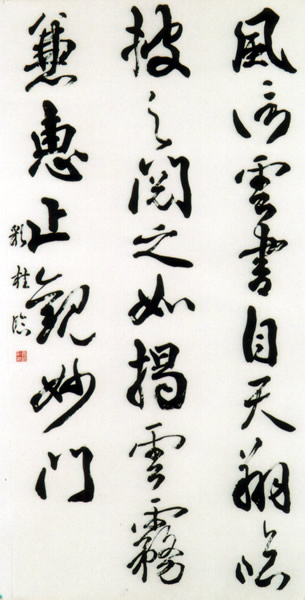 風信雲書自天翔臨
披之閱之如揭雲霧
兼惠止觀妙門
桂臨